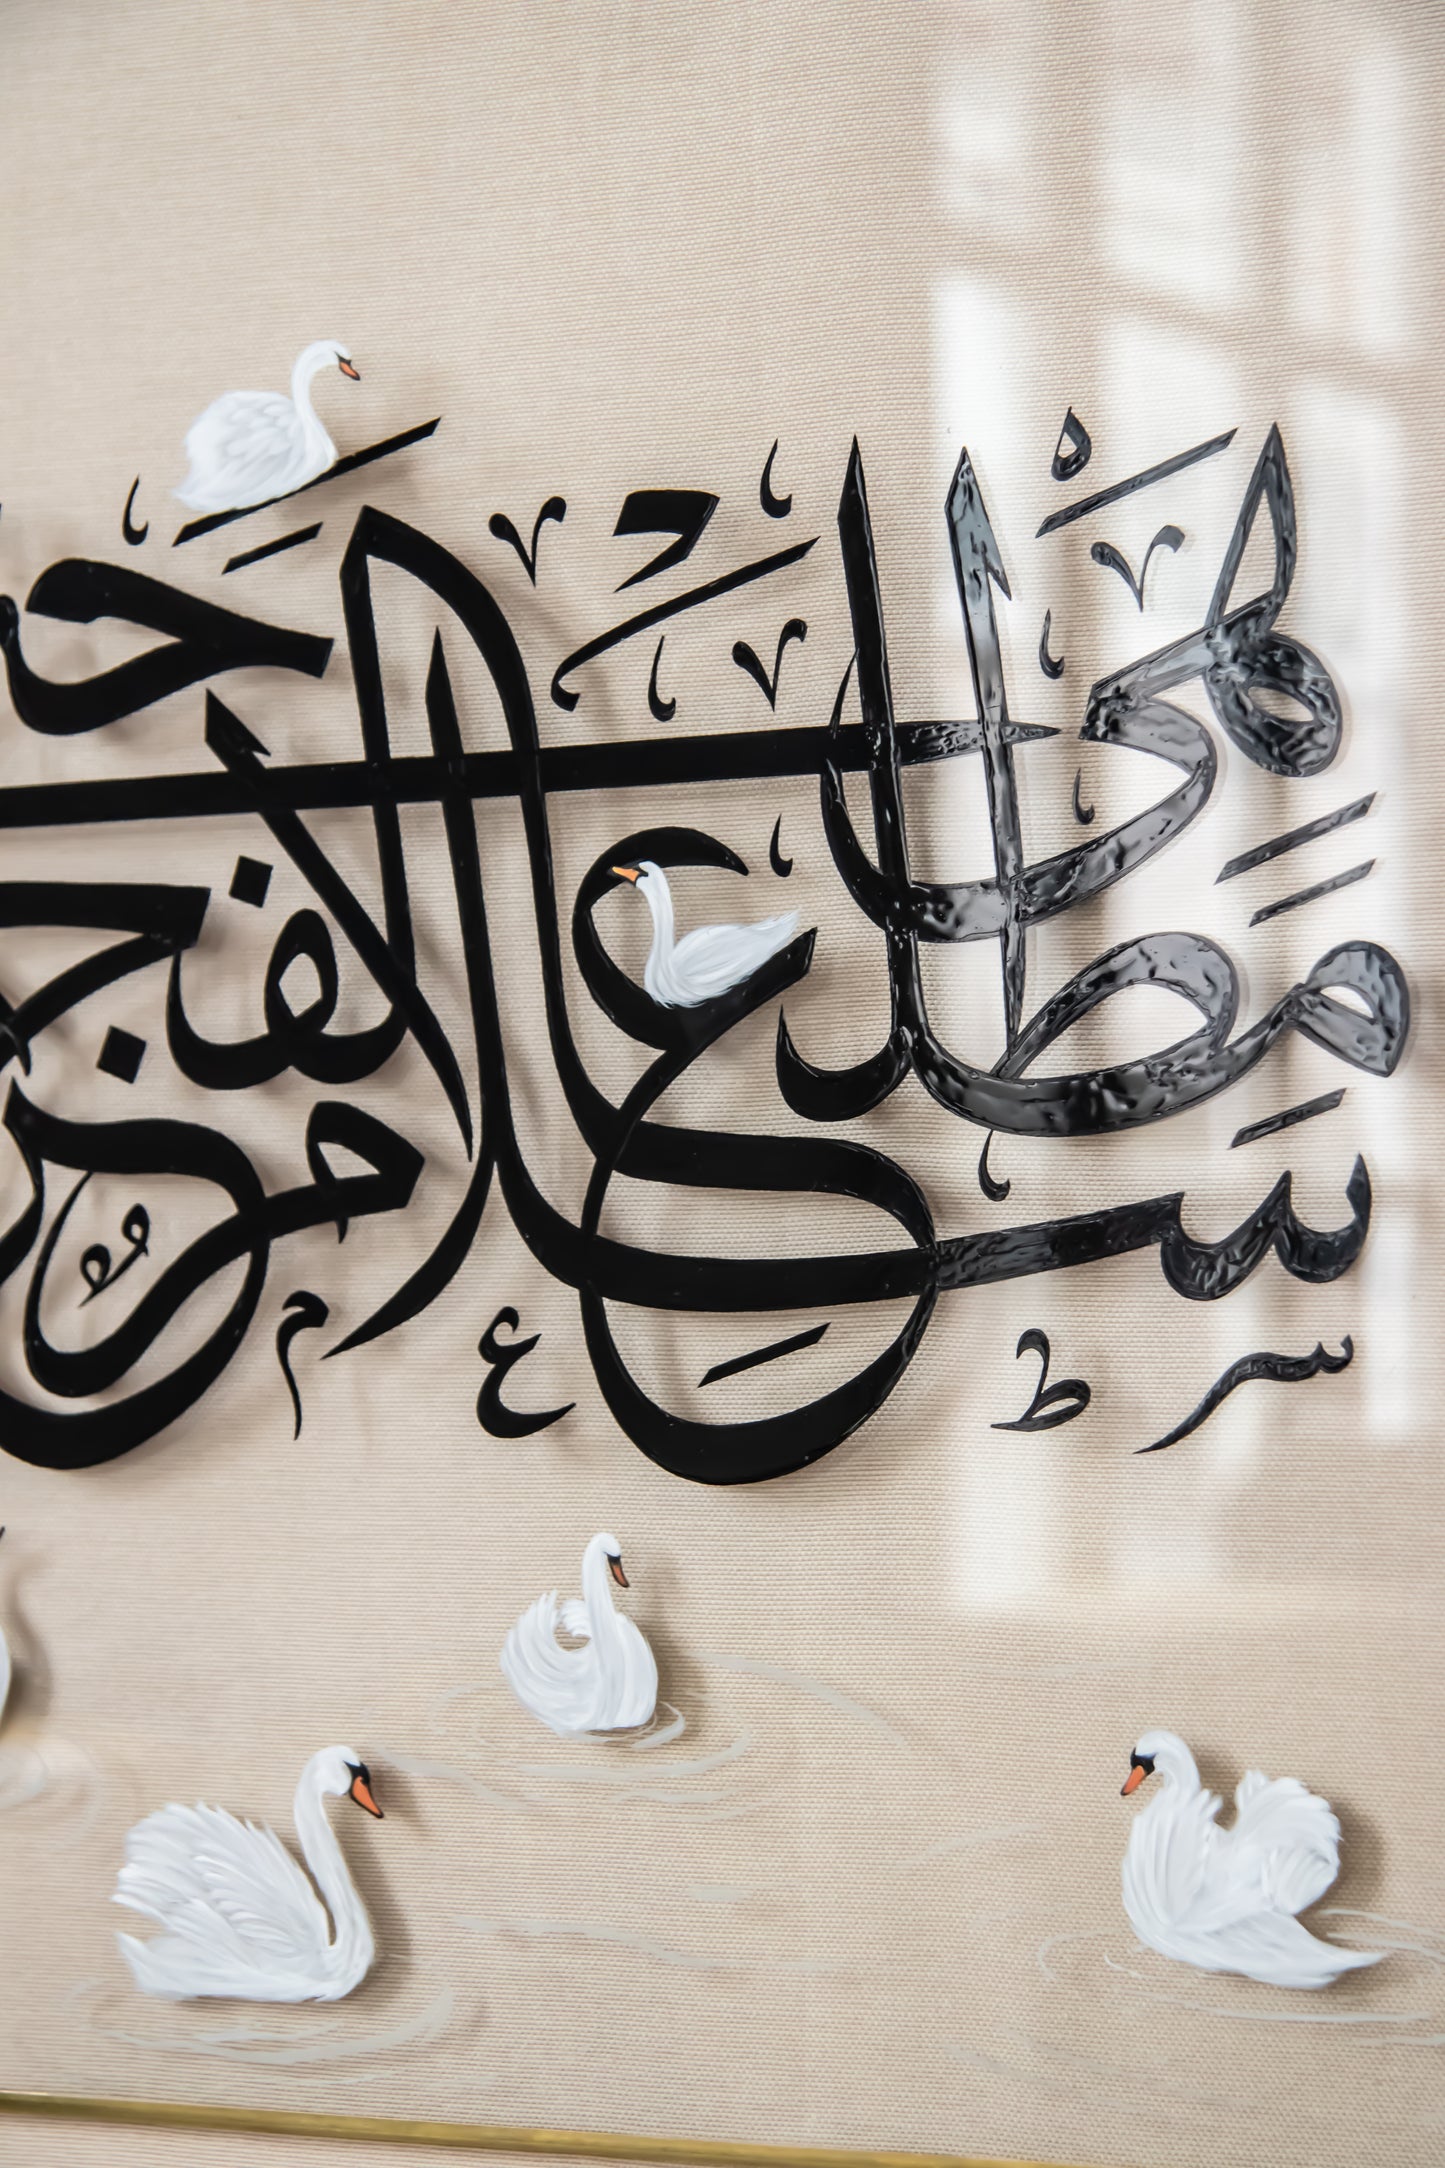 سَلَامٌ هِيَ حَتَّىٰ مَطْلَعِ الْفَجْرِ